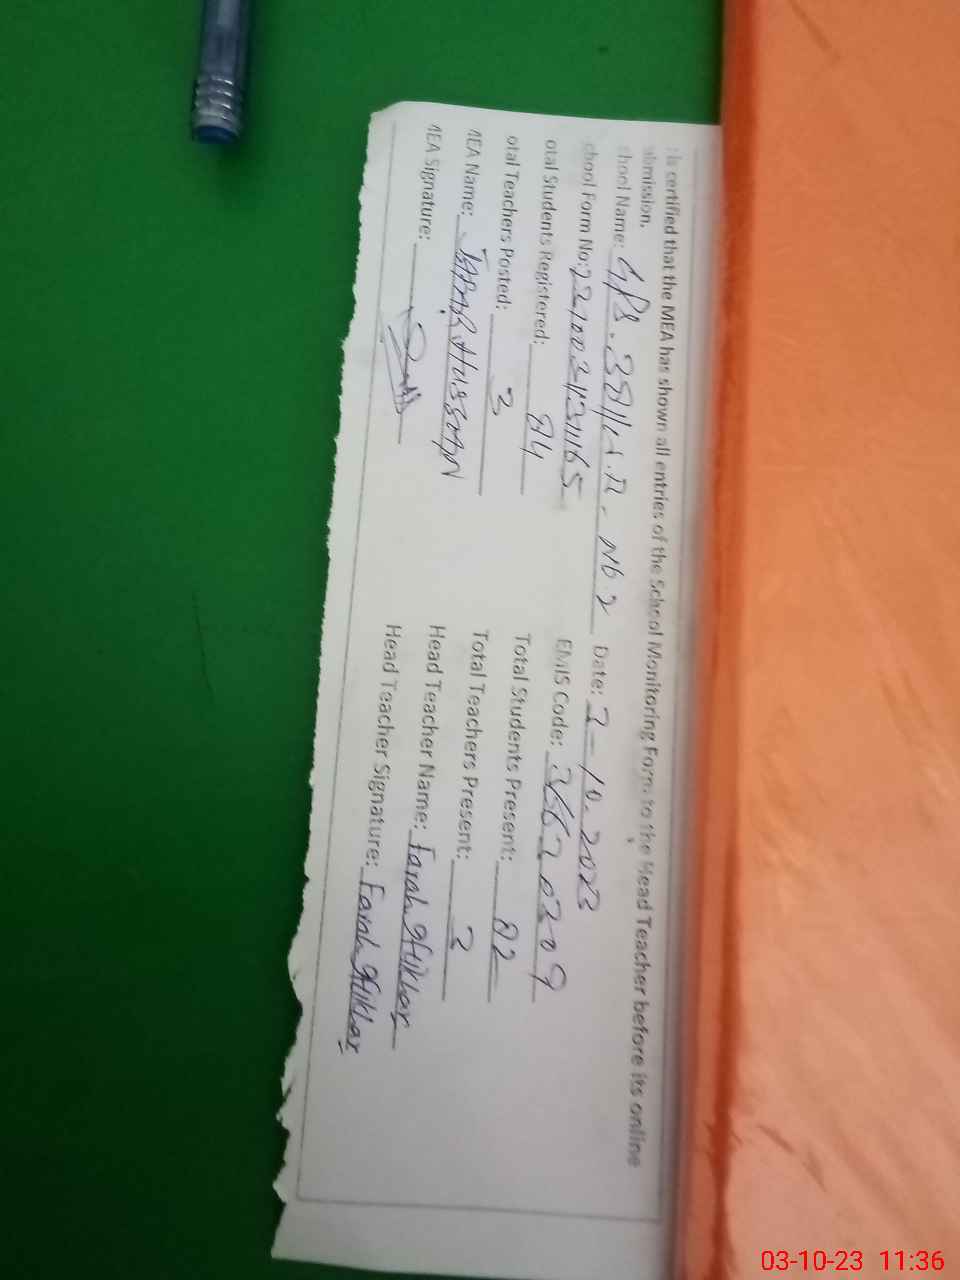 is certified that the MEA has shown all entries of the School Monitoring Form to the Head Teacher before its online
submission.
chool Name: GPS. 38/14.R. No 2 Date: 3-10.2023
chool Form No: EMIS Code: 36620209
otal Students Registered: 84 Total Students Present: 82
otal Teachers Posted: 3 Total Teachers Present: 3
MEA Name: JAFFAR HUSSAIN Head Teacher Name: Farah Iftikhar
MEA Signature: Head Teacher Signature: Farah Iftikhar
03-10-23 11:36